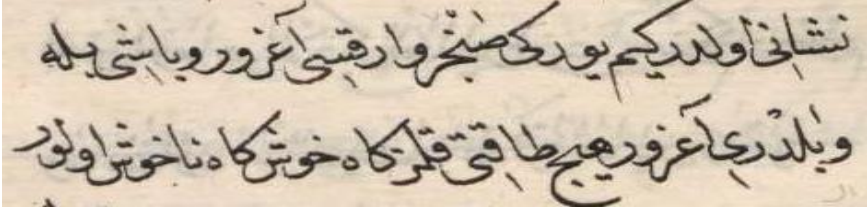 نشانی اولدر کیم یورکی صنجر و ارقسی آغرور و باشی بله
و بلدری آغرور هیچ طاقتی قلمز کاه خوش کاه ناخوش اولور